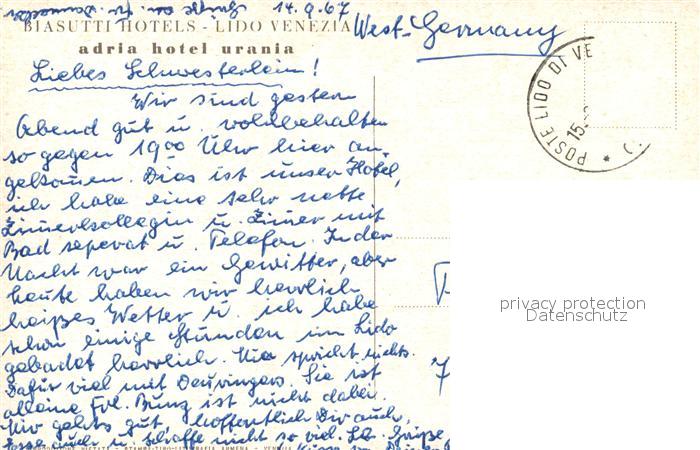 14.9.67
BIASUTTI HOTELS - LIDO VENEZIA
West-Germany
adria hotel urania
Liebes Schwesterlein!
Wir sind gestern
Abend gut u. wohlbehalten
so gegen 19 00 Uhr hier an-
gekommen. Dies ist unser Hotel,
ich habe eine sehr nette
Zimmerkollegin u. Zimmer mit
Bad seperat u. Telefon. In der
Nacht war ein Gewitter, aber
heute haben wir herrlich
heißes Wetter u. ich habe
schon einige Stunden im Lido
gebadet herrlich. Mia spricht nichts.
Dafür viel mit Deuringers. Sie ist
alleine Frl. Bunz ist nicht dabei.
Mir gehts gut, hoffentlich Dir auch,
esse auch u. schaffe nicht so viel. Grüße
POSTE LIDO DI VE
15.
privacy protection
Datenschutz